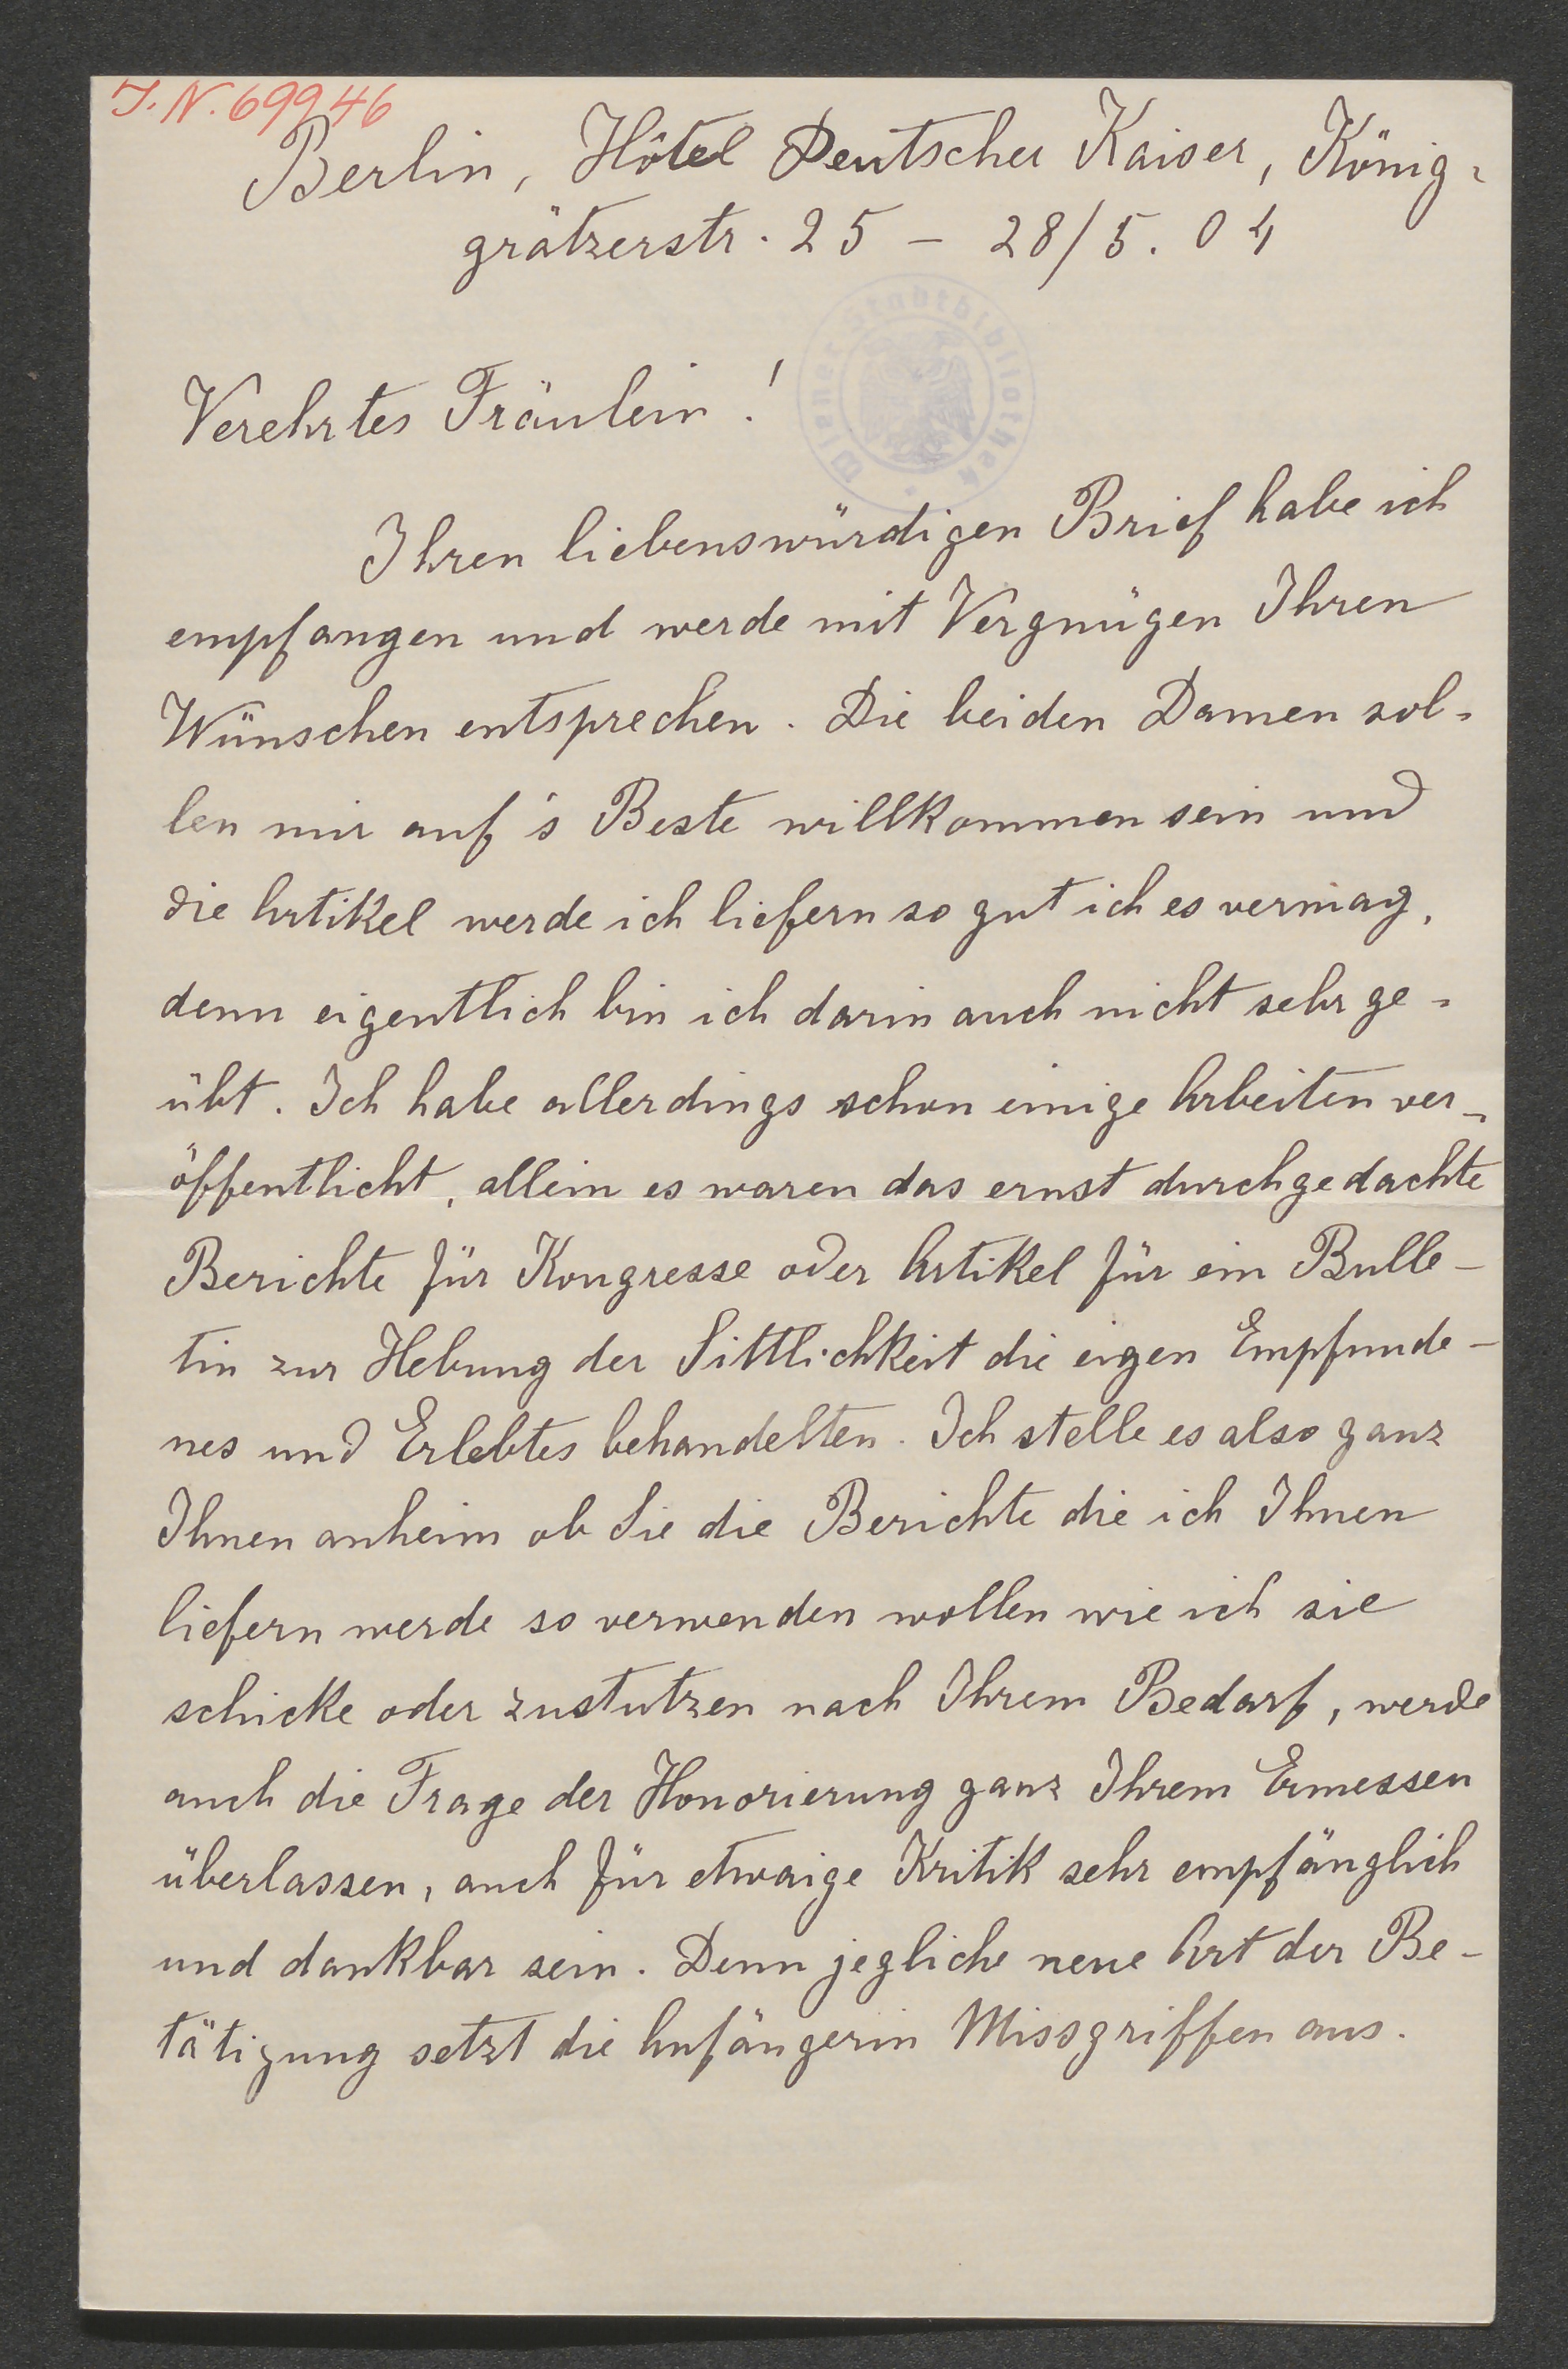 J. N. 69946
Berlin, Hôtel Deutscher Kaiser, König-
grätzerstr. 25 – 28/5. 04
Wiener Stadtbibliothek
Verehrtes Fräulein!
Ihren liebenswürdigen Brief habe ich
empfangen und werde mit Vergnügen Ihren
Wünschen entsprechen. Die beiden Damen sol-
len mir auf's Beste willkommen sein und
die Artikel werde ich liefern so gut ich es vermag,
denn eigentlich bin ich darin auch nicht sehr ge-
übt. Ich habe allerdings schon einige Arbeiten ver-
öffentlicht, allein es waren das ernst durchgedachte
Berichte für Kongresse oder Artikel für ein Bulle-
tin zur Hebung der Sittlichkeit die eigen Empfunde-
nes und Erlebtes behandelten. Ich stelle es also ganz
Ihnen anheim ob Sie die Berichte die ich Ihnen
liefern werde so verwenden wollen wie ich sie
schicke oder zustutzen nach Ihrem Bedarf, werde
auch die Frage der Honorierung ganz Ihrem Ermessen
überlassen, auch für etwaige Kritik sehr empfänglich
und dankbar sein. Denn jegliche neue Art der Be-
tätigung setzt die Anfängerin Missgriffen aus.